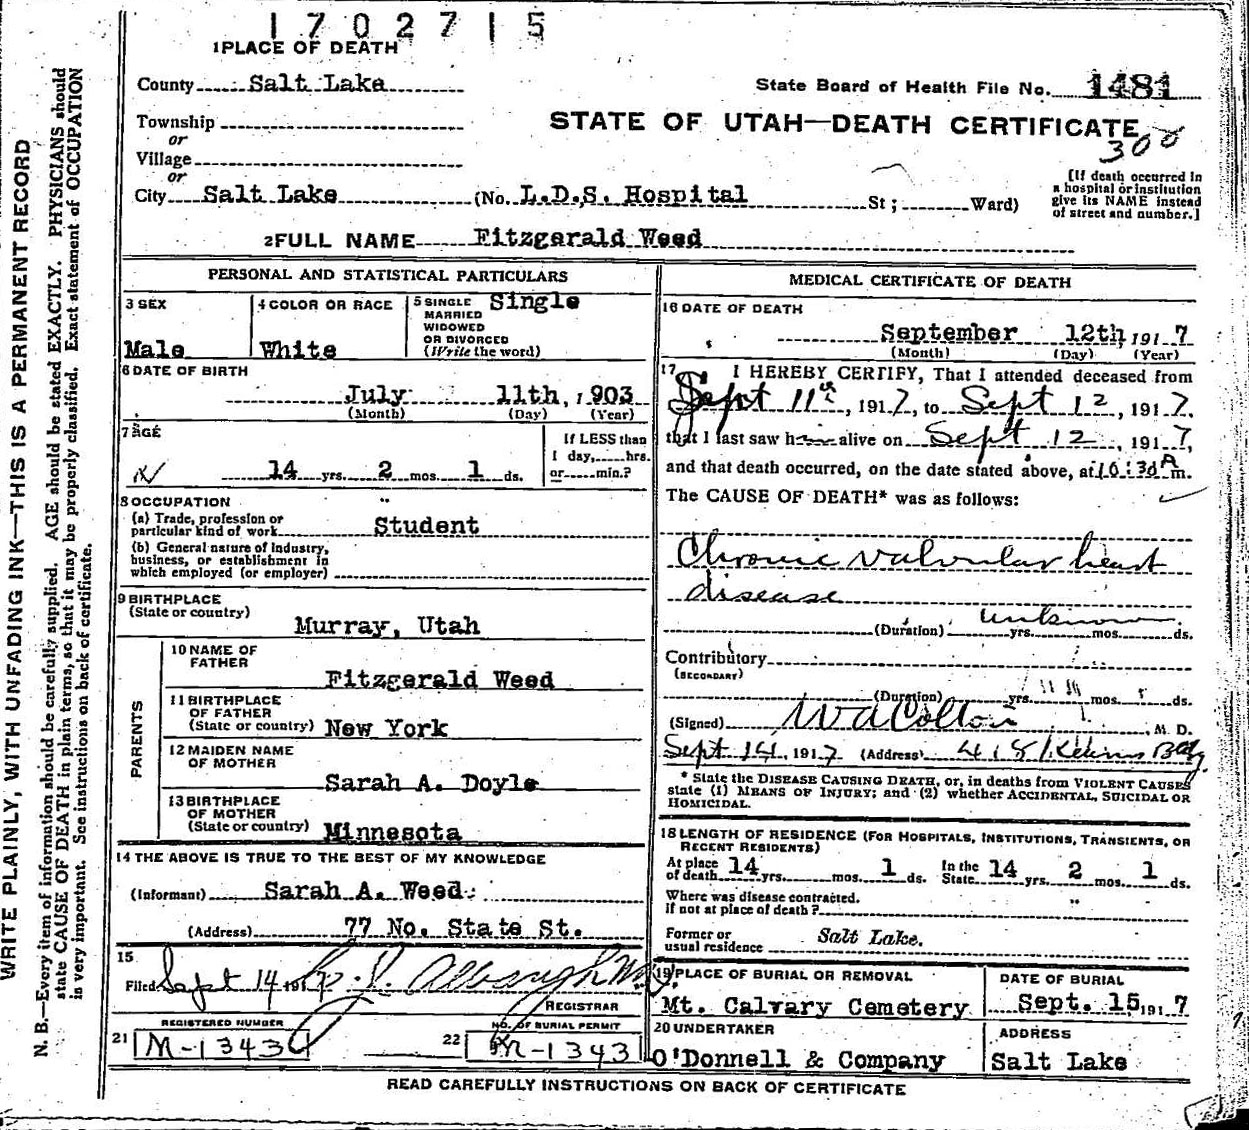 1702715
1 PLACE OF DEATH
County Salt Lake
State Board of Health File No. 1481
Township
or
STATE OF UTAH—DEATH CERTIFICATE
300
Village
or
City Salt Lake (No. L.D.S. Hospital St; Ward)
[If death occurred in
a hospital or institution
give its NAME instead
of street and number.]
2 FULL NAME Fitzgerald Weed
PERSONAL AND STATISTICAL PARTICULARS
3 SEX
Male
4 COLOR OR RACE
White
5 SINGLE Single
MARRIED
WIDOWED
OR DIVORCED
(Write the word)
6 DATE OF BIRTH
July 11th, 1903
(Month) (Day) (Year)
7 AGE
14 yrs. 2 mos. 1 ds.
If LESS than
1 day, hrs.
or min.?
8 OCCUPATION
(a) Trade, profession or
particular kind of work Student
(b) General nature of industry,
business, or establishment in
which employed (or employer)
9 BIRTHPLACE
(State or country)
Murray, Utah
PARENTS
10 NAME OF
FATHER
Fitzgerald Weed
11 BIRTHPLACE
OF FATHER
(State or country) New York
12 MAIDEN NAME
OF MOTHER
Sarah A. Doyle
13 BIRTHPLACE
OF MOTHER
(State or country) Minnesota
14 THE ABOVE IS TRUE TO THE BEST OF MY KNOWLEDGE
(Informant) Sarah A. Weed
(Address) 77 No. State St.
15
Filed Sept 14 1917
REGISTRAR
REGISTERED NUMBER
21 M-1343
NO. OF BURIAL PERMIT
22 M-1343
MEDICAL CERTIFICATE OF DEATH
16 DATE OF DEATH
September 12th, 1917
(Month) (Day) (Year)
17 I HEREBY CERTIFY, That I attended deceased from
Sept 11th, 1917, to Sept 12, 1917,
that I last saw h alive on Sept 12, 1917,
and that death occurred, on the date stated above, at 10:30 A m.
The CAUSE OF DEATH* was as follows:
Chronic valvular heart
disease
(Duration) unknown yrs. mos. ds.
Contributory
(SECONDARY)
(Duration) yrs. mos. ds.
(Signed) W A Colton, M. D.
Sept 14, 1917 (Address) 418 Kearns Bldg.
* State the DISEASE CAUSING DEATH, or, in deaths from VIOLENT CAUSES
state (1) MEANS OF INJURY; and (2) whether ACCIDENTAL, SUICIDAL OR
HOMICIDAL.
18 LENGTH OF RESIDENCE (FOR HOSPITALS, INSTITUTIONS, TRANSIENTS, OR
RECENT RESIDENTS)
At place
of death 14 yrs. mos. 1 ds. In the
State 14 yrs. 2 mos. 1 ds.
Where was disease contracted.
if not at place of death?
Former or
usual residence Salt Lake.
19 PLACE OF BURIAL OR REMOVAL
Mt. Calvary Cemetery
DATE OF BURIAL
Sept. 15, 1917
20 UNDERTAKER
O'Donnell & Company
ADDRESS
Salt Lake
READ CAREFULLY INSTRUCTIONS ON BACK OF CERTIFICATE
WRITE PLAINLY, WITH UNFADING INK—THIS IS A PERMANENT RECORD
N. B.—Every item of information should be carefully supplied. AGE should be stated EXACTLY. PHYSICIANS should
state CAUSE OF DEATH in plain terms, so that it may be properly classified. Exact statement of OCCUPATION
is very important. See instructions on back of certificate.